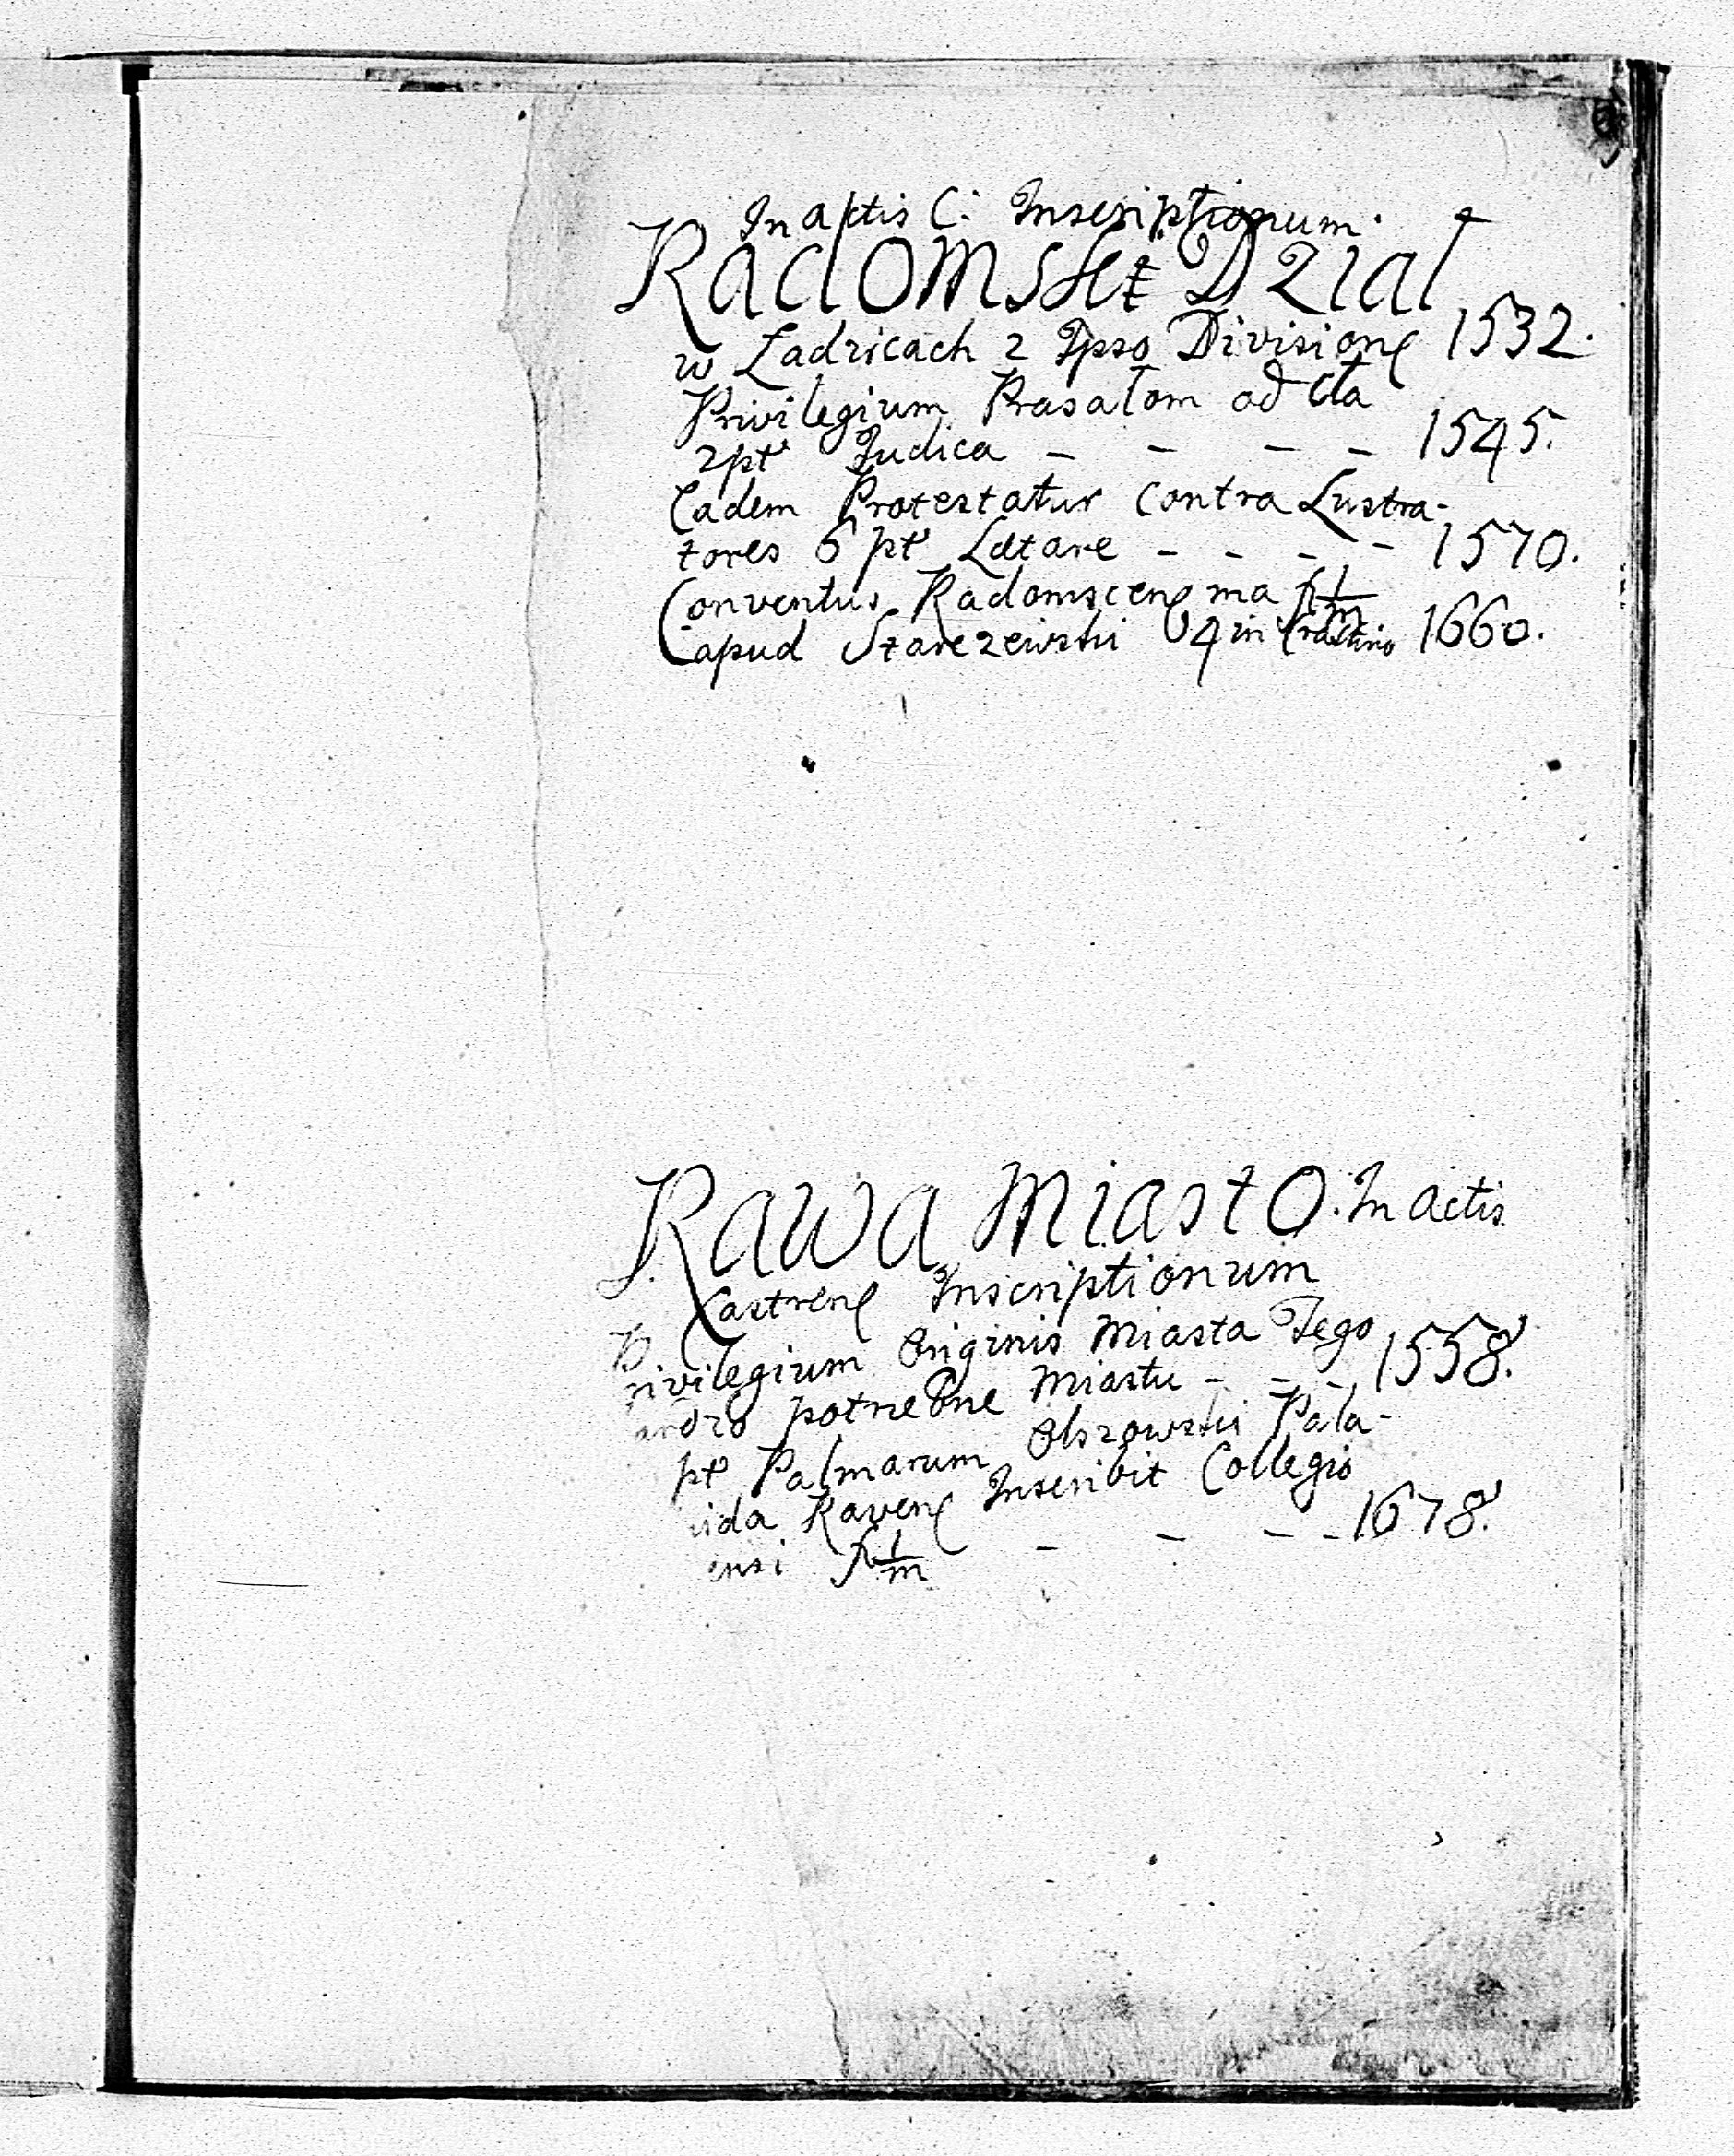 In actis C: Inscriptionum.
Radomskt Dział
w Ladzicach z Ipso Division 1532.
Privilegium Prasałom od cła
2 pt Iudica - - - - 1545.
Eadem Protestatur contra Lustra-
tores 6 pt Lætare - - - - 1570.
Conventus Radomscen ma
Capud Starczewski 4 in Crastino 1660.
Rawa Miasto. In Actis
Castren Inscriptionum
Privilegium Originis Miasta Tego
potrzebne Miastu - - - 1558.
pt Palmarum Olszowski Pala-
Raven Inscribit Collegio
ensi - - - - 1678.